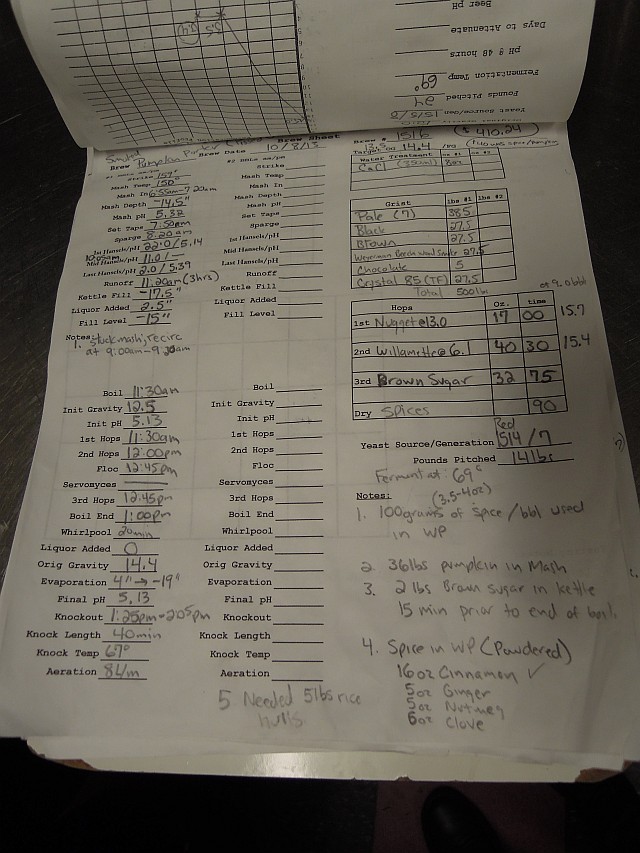 Beer pH
Days to Attenuate
pH @ 48 hours
Fermentation Temp 69°
Founds Pitched 24
Yeast Source/Gen 1515/2
Brew Sheet
Brew Pumpkin Porter
Brew Date 10/8/13
Brew # 1516
$ 410.24
Target OG 14.4
Water Treatment
CaCl
Strike 157°
Mash Temp 150°
Mash In 6:55am-7:20am
Mash Depth -14.5"
Mash pH 5.32
Set Taps 7:50pm
Sparge 8:20am
1st Hansch/pH 22.0/5.14
Mid Hansch/pH 11.0/-
Last Hansch/pH 2.0/5.39
Runoff 11:20am (3hrs)
Kettle Fill -17.5"
Liquor Added 2.5"
Fill Level -15"
Notes:
1. Stuck mash, recirc
at 9:00am-9:20am
Strike
Mash Temp
Mash In
Mash Depth
Mash pH
Set Taps
Sparge
1st Hansch/pH
Mid Hansch/pH
Last Hansch/pH
Runoff
Kettle Fill
Liquor Added
Fill Level
Grist lbs #1 lbs #2
Pale (7) 385
Black 27.5
Brown 27.5
Weyerman Beech wood Smoke 27.5
Chocolate 5
Crystal 85 (TF) 27.5
Total 500lbs
Hops Oz. time
1st Nugget @ 13.0 17 00 15.7
2nd Willamette @ 6.1 40 30 15.4
3rd Brown Sugar 32 75
Dry Spices 90
Boil 11:30am
Init Gravity 12.5
Init pH 5.13
1st Hops 11:30am
2nd Hops 12:00pm
Floc 12:45pm
Servomyces
3rd Hops 12:45pm
Boil End 1:00pm
Whirlpool 20min
Liquor Added 0
Orig Gravity 14.4
Evaporation 4" → -19"
Final pH 5.13
Knockout 1:25pm-2:05pm
Knock Length 40min
Knock Temp 67°
Aeration 8L/m
Boil
Init Gravity
Init pH
1st Hops
2nd Hops
Floc
Servomyces
3rd Hops
Boil End
Whirlpool
Liquor Added
Orig Gravity
Evaporation
Final pH
Knockout
Knock Length
Knock Temp
Aeration
5 Needed 5lbs rice
hulls
Red
Yeast Source/Generation 1514/7
Pounds Pitched 14lbs
Ferment at 69°
Notes: (3.5-4oz)
1. 100grams of spice/bbl used
in WP
2. 36lbs pumpkin in Mash
3. 2lbs Brown sugar in kettle
15 min prior to end of boil
4. Spice in WP (Powdered)
16oz Cinnamon ✓
5oz Ginger
5oz Nutmeg
6oz Clove